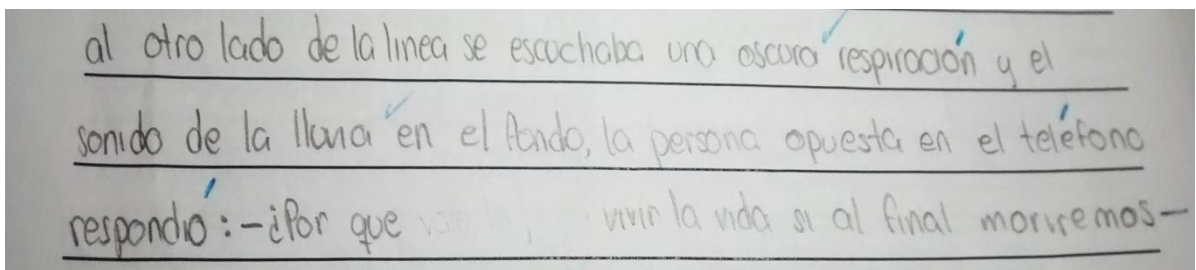 al otro lado de la linea se escuchaba una oscura respiración y el
sonido de la lluvia en el fondo, la persona opuesta en el teléfono
respondió: -¿Por que vivir la vida si al final moriremos-